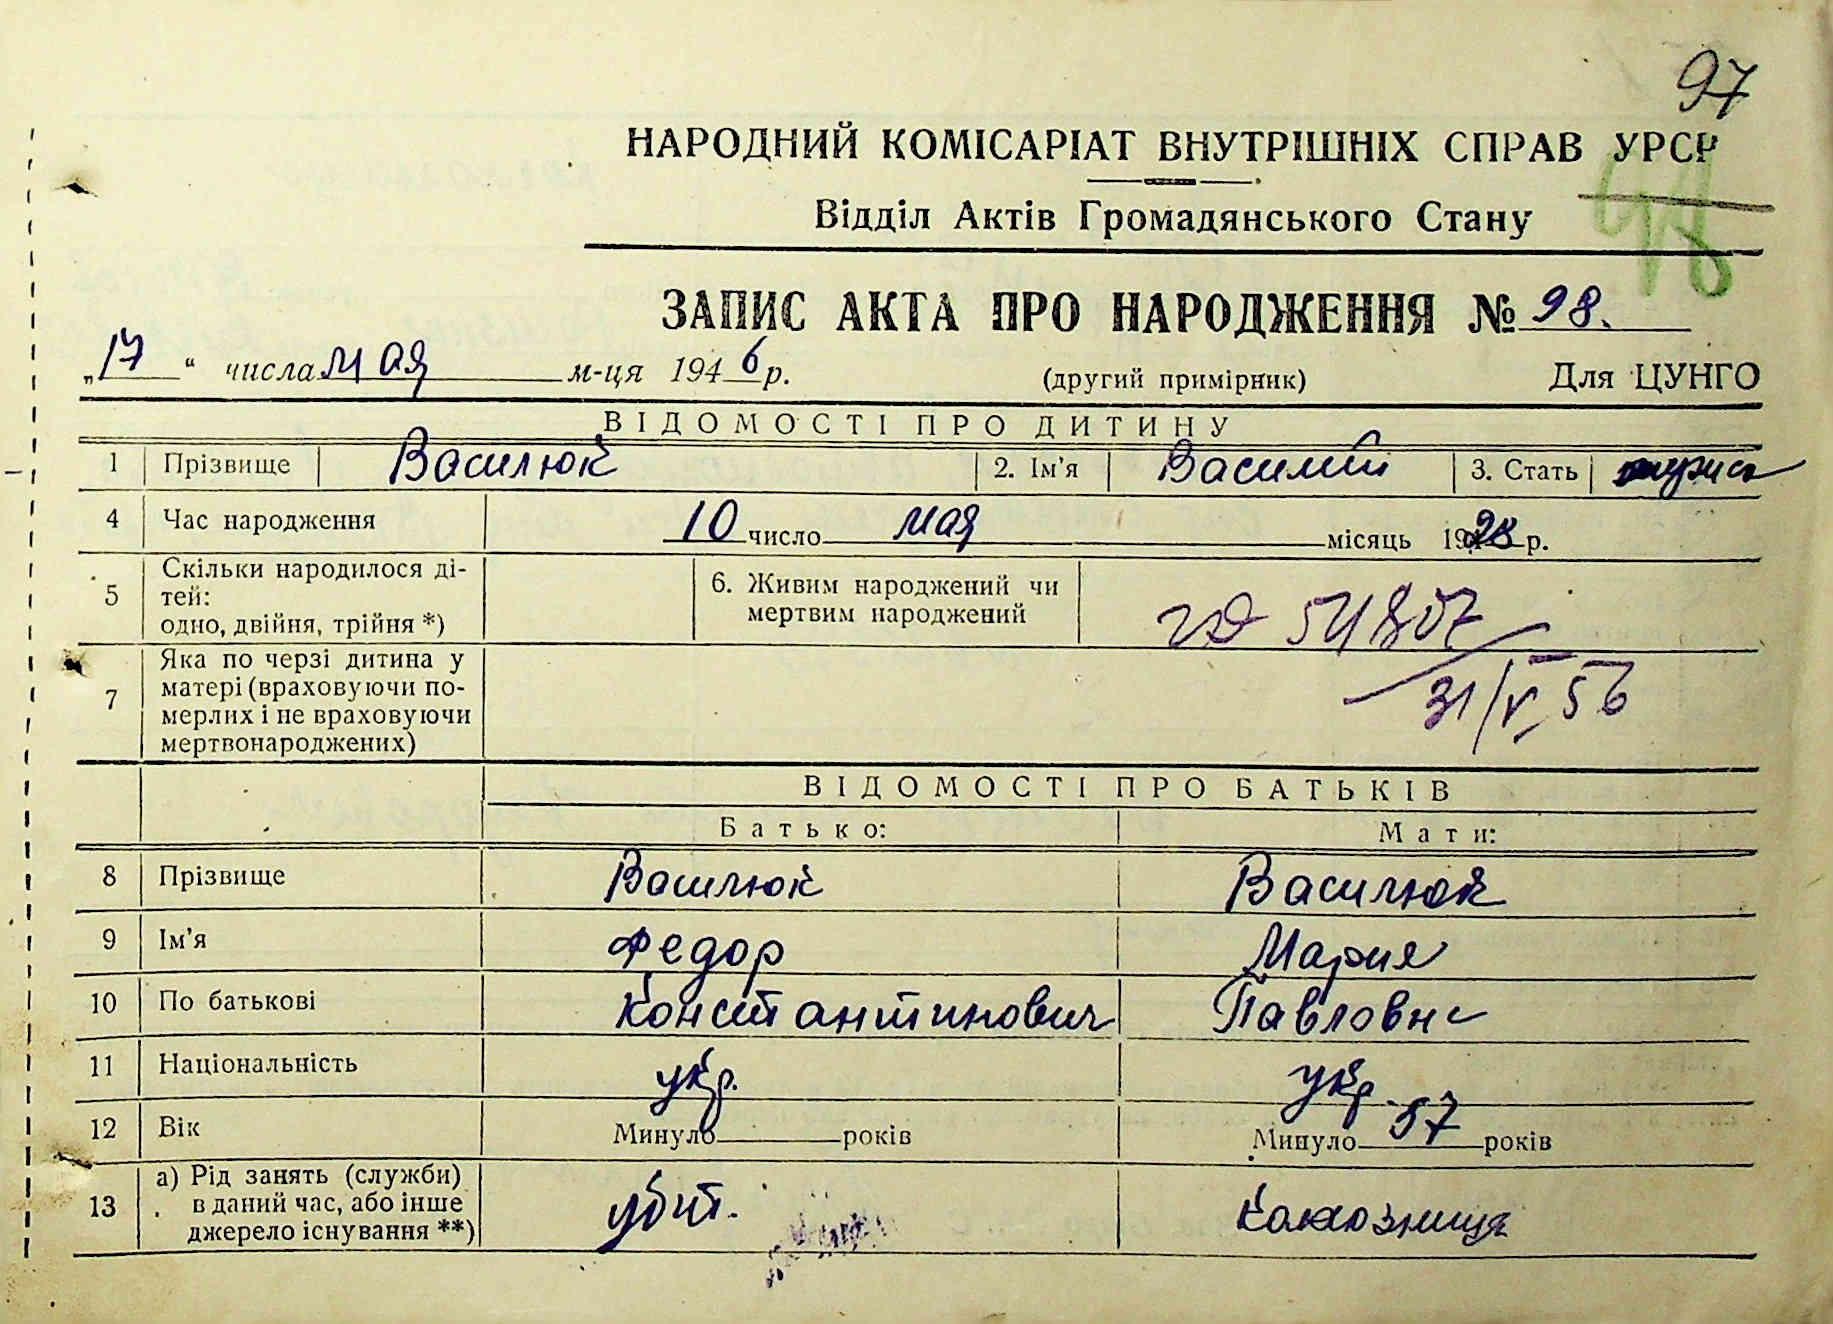 97
НАРОДНИЙ КОМІСАРІАТ ВНУТРІШНІХ СПРАВ УРСР
Відділ Актів Громадянського Стану
98
ЗАПИС АКТА ПРО НАРОДЖЕННЯ № 98.
„17“ числа мая м-ця 1946 р. (другий примірник) Для ЦУНГО
ВІДОМОСТІ ПРО ДИТИНУ
1 Прізвище Василюк 2. Ім'я Василий 3. Стать
4 Час народження 10 число мая місяць 1928 р.
5 Скільки народилося ді-
тей:
одно, двійня, трійня *)
6. Живим народжений чи
мертвим народжений
7 Яка по черзі дитина у
матері (враховуючи по-
мерлих і не враховуючи
мертвонароджених)
31/V 56
ВІДОМОСТІ ПРО БАТЬКІВ
Батько: Мати:
8 Прізвище Василюк Василюк
9 Ім'я Федор Мария
10 По батькові Константинович Павловна
11 Національність укр. укр.
12 Вік Минуло років Минуло 57 років
13 а) Рід занять (служби)
в даний час, або інше
джерело існування **)
убит. колхозница